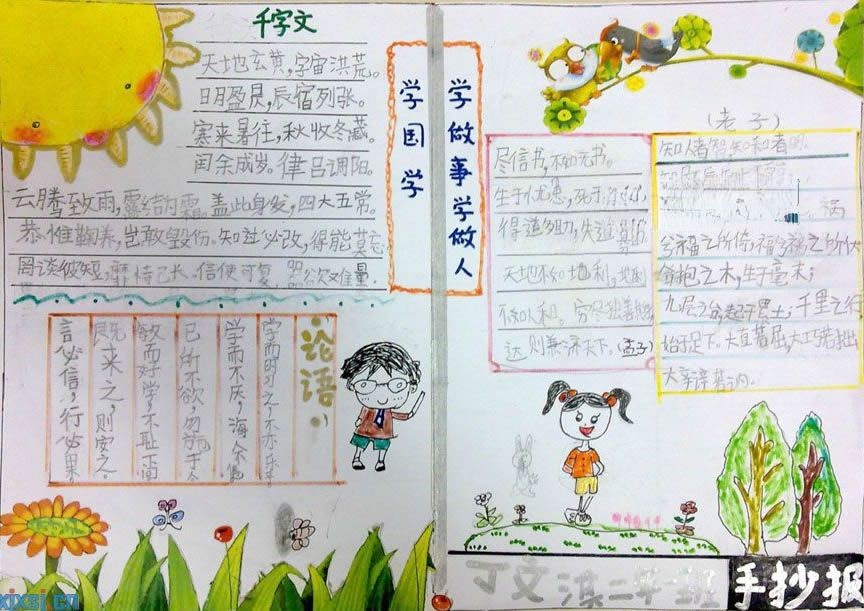 千字文
天地玄黄，宇宙洪荒。
日月盈昃，辰宿列张。
寒来暑往，秋收冬藏。
闰余成岁。律吕调阳。
云腾致雨，露结为霜。盖此身发，四大五常。
恭惟鞠养，岂敢毁伤。知过必改，得能莫忘
罔谈彼短，靡恃己长。信使可复，器欲难量。
学国学
学做事学做人
论语：
学而时习之，不亦乐
学而不厌，诲人不倦
己所不欲，勿施于人
敏而好学，不耻下问
既来之，则安之。
言必信，行必果
尽信书，不如无书。
生于忧患，死于
得道多助，失道
天地不如地利，地利
不如人和。穷尽独善其身
达则兼济天下。(孟子)
(老子)
知人者智，知者明。
祸
兮福之所倚，福兮祸之所伏
合抱之木，生于毫末；
九层之台，起于垒土；千里之行
始于足下。大直若屈，大巧若拙
大辛若讷。
丁文淇二年一班
手抄报
xixsj.cn